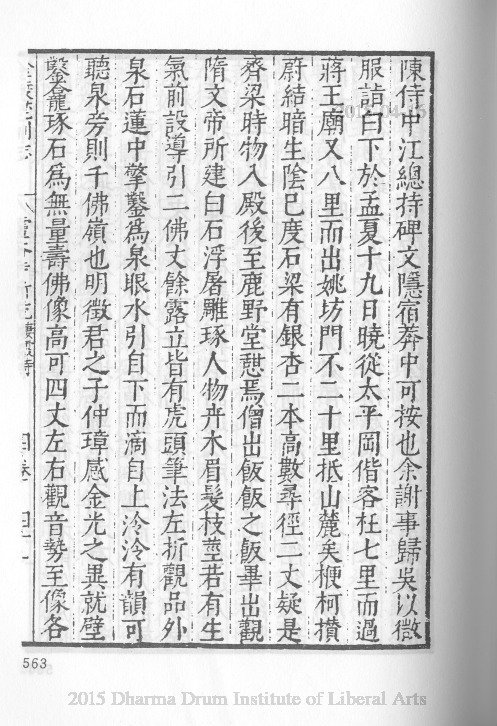 陳侍中江總持碑文隱宿莽中可按也余謝事歸吳以微
服詣白下於孟夏十九日曉從太平岡偕客枉七里而過
蔣王廟又八里而出姚坊門不二十里抵山麓矣楩柯攢
蔚結暗生陰已度石梁有銀杏二本高數尋徑二丈疑是
齊梁時物入殿後至鹿野堂憇焉僧出飯飯之飯畢出觀
隋文帝所建白石浮屠雕琢人物卉木眉髮枝莖若有生
氣前設導引二佛丈餘露立皆有虎頭筆法左折觀品外
泉石蓮中擎鑿爲泉眼水引自下而滴自上泠泠有韻可
聽泉旁則千佛嶺也明徵君之子仲璋感金光之異就壁
鑿龕琢石爲無量壽佛像高可四丈左右觀音勢至像各
563
2015 Dharma Drum Institute of Liberal Arts